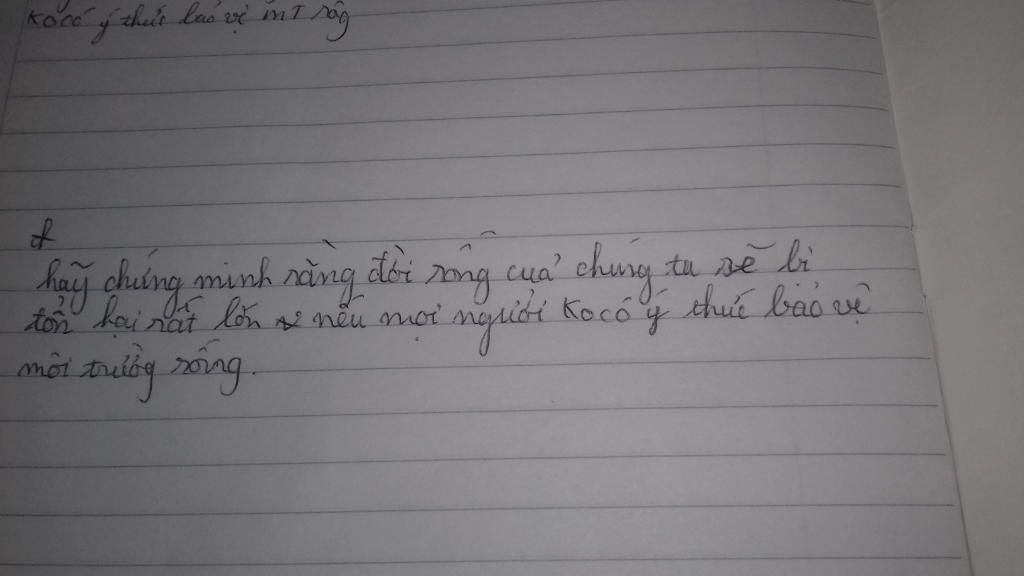 Ko có ý thức bảo vệ MT sôg
hãy chứng minh rằng đời sống của chúng ta sẽ bị
tổn hại rất lớn nếu mọi người Ko có ý thức bảo vệ
môi trườg sống.